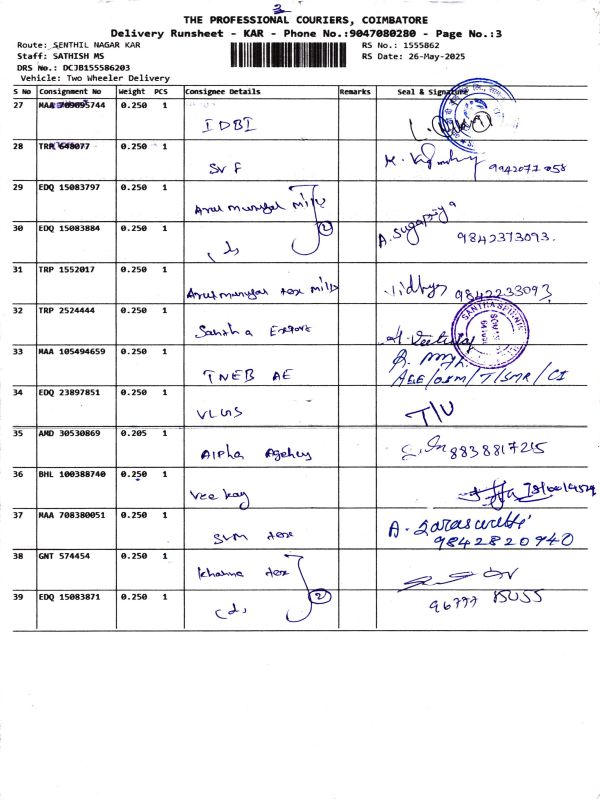 3
THE PROFESSIONAL COURIERS, COIMBATORE
Delivery Runsheet - KAR - Phone No.:9047080280 - Page No.:3
Route: SENTHIL NAGAR KAR
RS No.: 1555862
Staff: SATHISH MS
RS Date: 26-May-2025
DRS No.: DCJB155586203
Vehicle: Two Wheeler Delivery
S No Consignment No Weight PCS Consignee Details Remarks Seal & Signature
27 MAA 709695744 0.250 1
IDBI
28 TRR 648077 0.250 1
SVF
29 EDQ 15083797 0.250 1
Arul murugal mills
30 EDQ 15083884 0.250 1
2
A. Sugapriya
9842373093.
31 TRP 1552017 0.250 1
Arul murugal tex mills Vidhya 9842233093
32 TRP 2524444 0.250 1
Santha Export
33 MAA 105494659 0.250 1
TNEB AE
AEE/O&M/T/SMR/CI
34 EDQ 23897851 0.250 1
T/V
35 AMD 30530869 0.205 1
Alpha Agency 8838817215
36 BHL 100388740 0.250 1
Vee kay
37 MAA 708380051 0.250 1
SVM tex A. Saraswathi
9842820940
38 GNT 574454 0.250 1
Khanna tex
39 EDQ 15083871 0.250 1
2